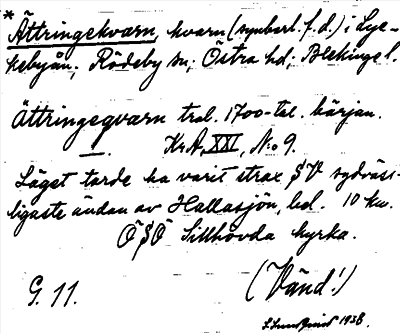 * Ättringekvarn, kvarn (synbarl. f.d.) i Lyc-
kebyån; Rödeby sn; Östra hd; Blekinge l.
Ättringeqvarn trol. 1700-tal. början.
— KrA, XXI, No 9.
Läget torde ha varit strax SV sydväst-
ligaste ändan av Hallasjön, bel. 10 km.
ÖSÖ Sillhövda kyrka.
G. 11.
(Vänd!)
S. Lundquist 1938.